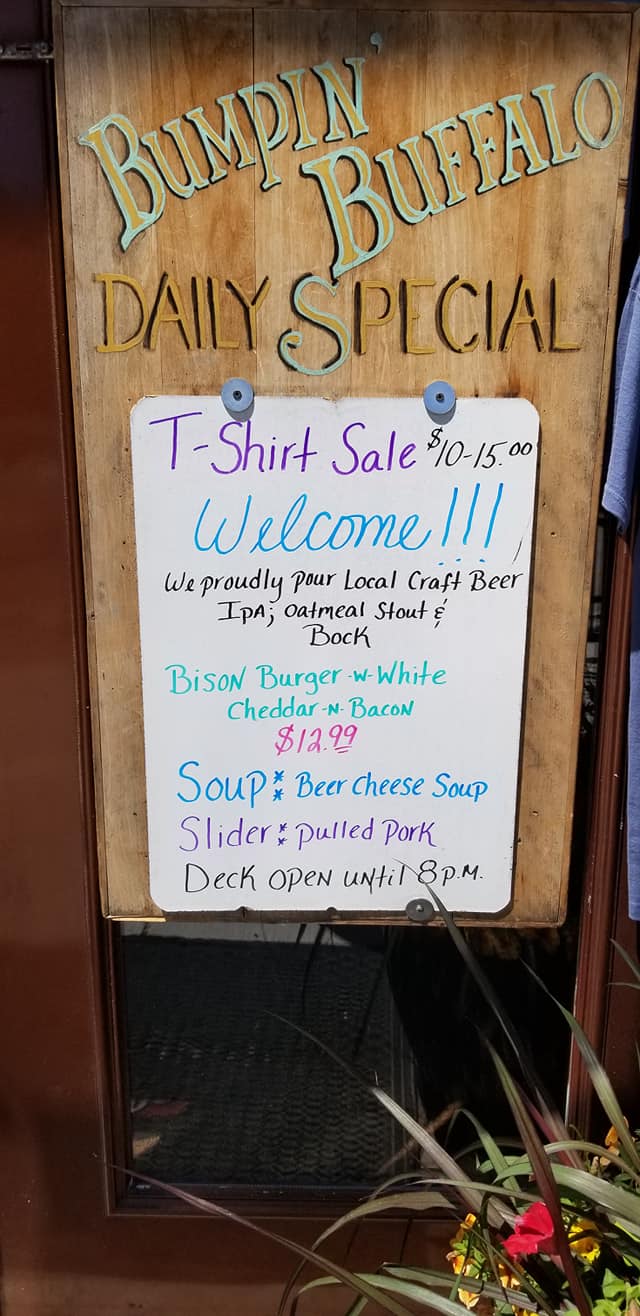 BUMPIN'
BUFFALO
DAILY SPECIAL
T-Shirt Sale $10-15.00
Welcome!!!
We proudly pour Local Craft Beer
IPA; Oatmeal Stout &
Bock
Bison Burger -w- White
Cheddar -N- Bacon
$12.99
Soup: Beer Cheese Soup
Slider: Pulled Pork
Deck open until 8 p.m.